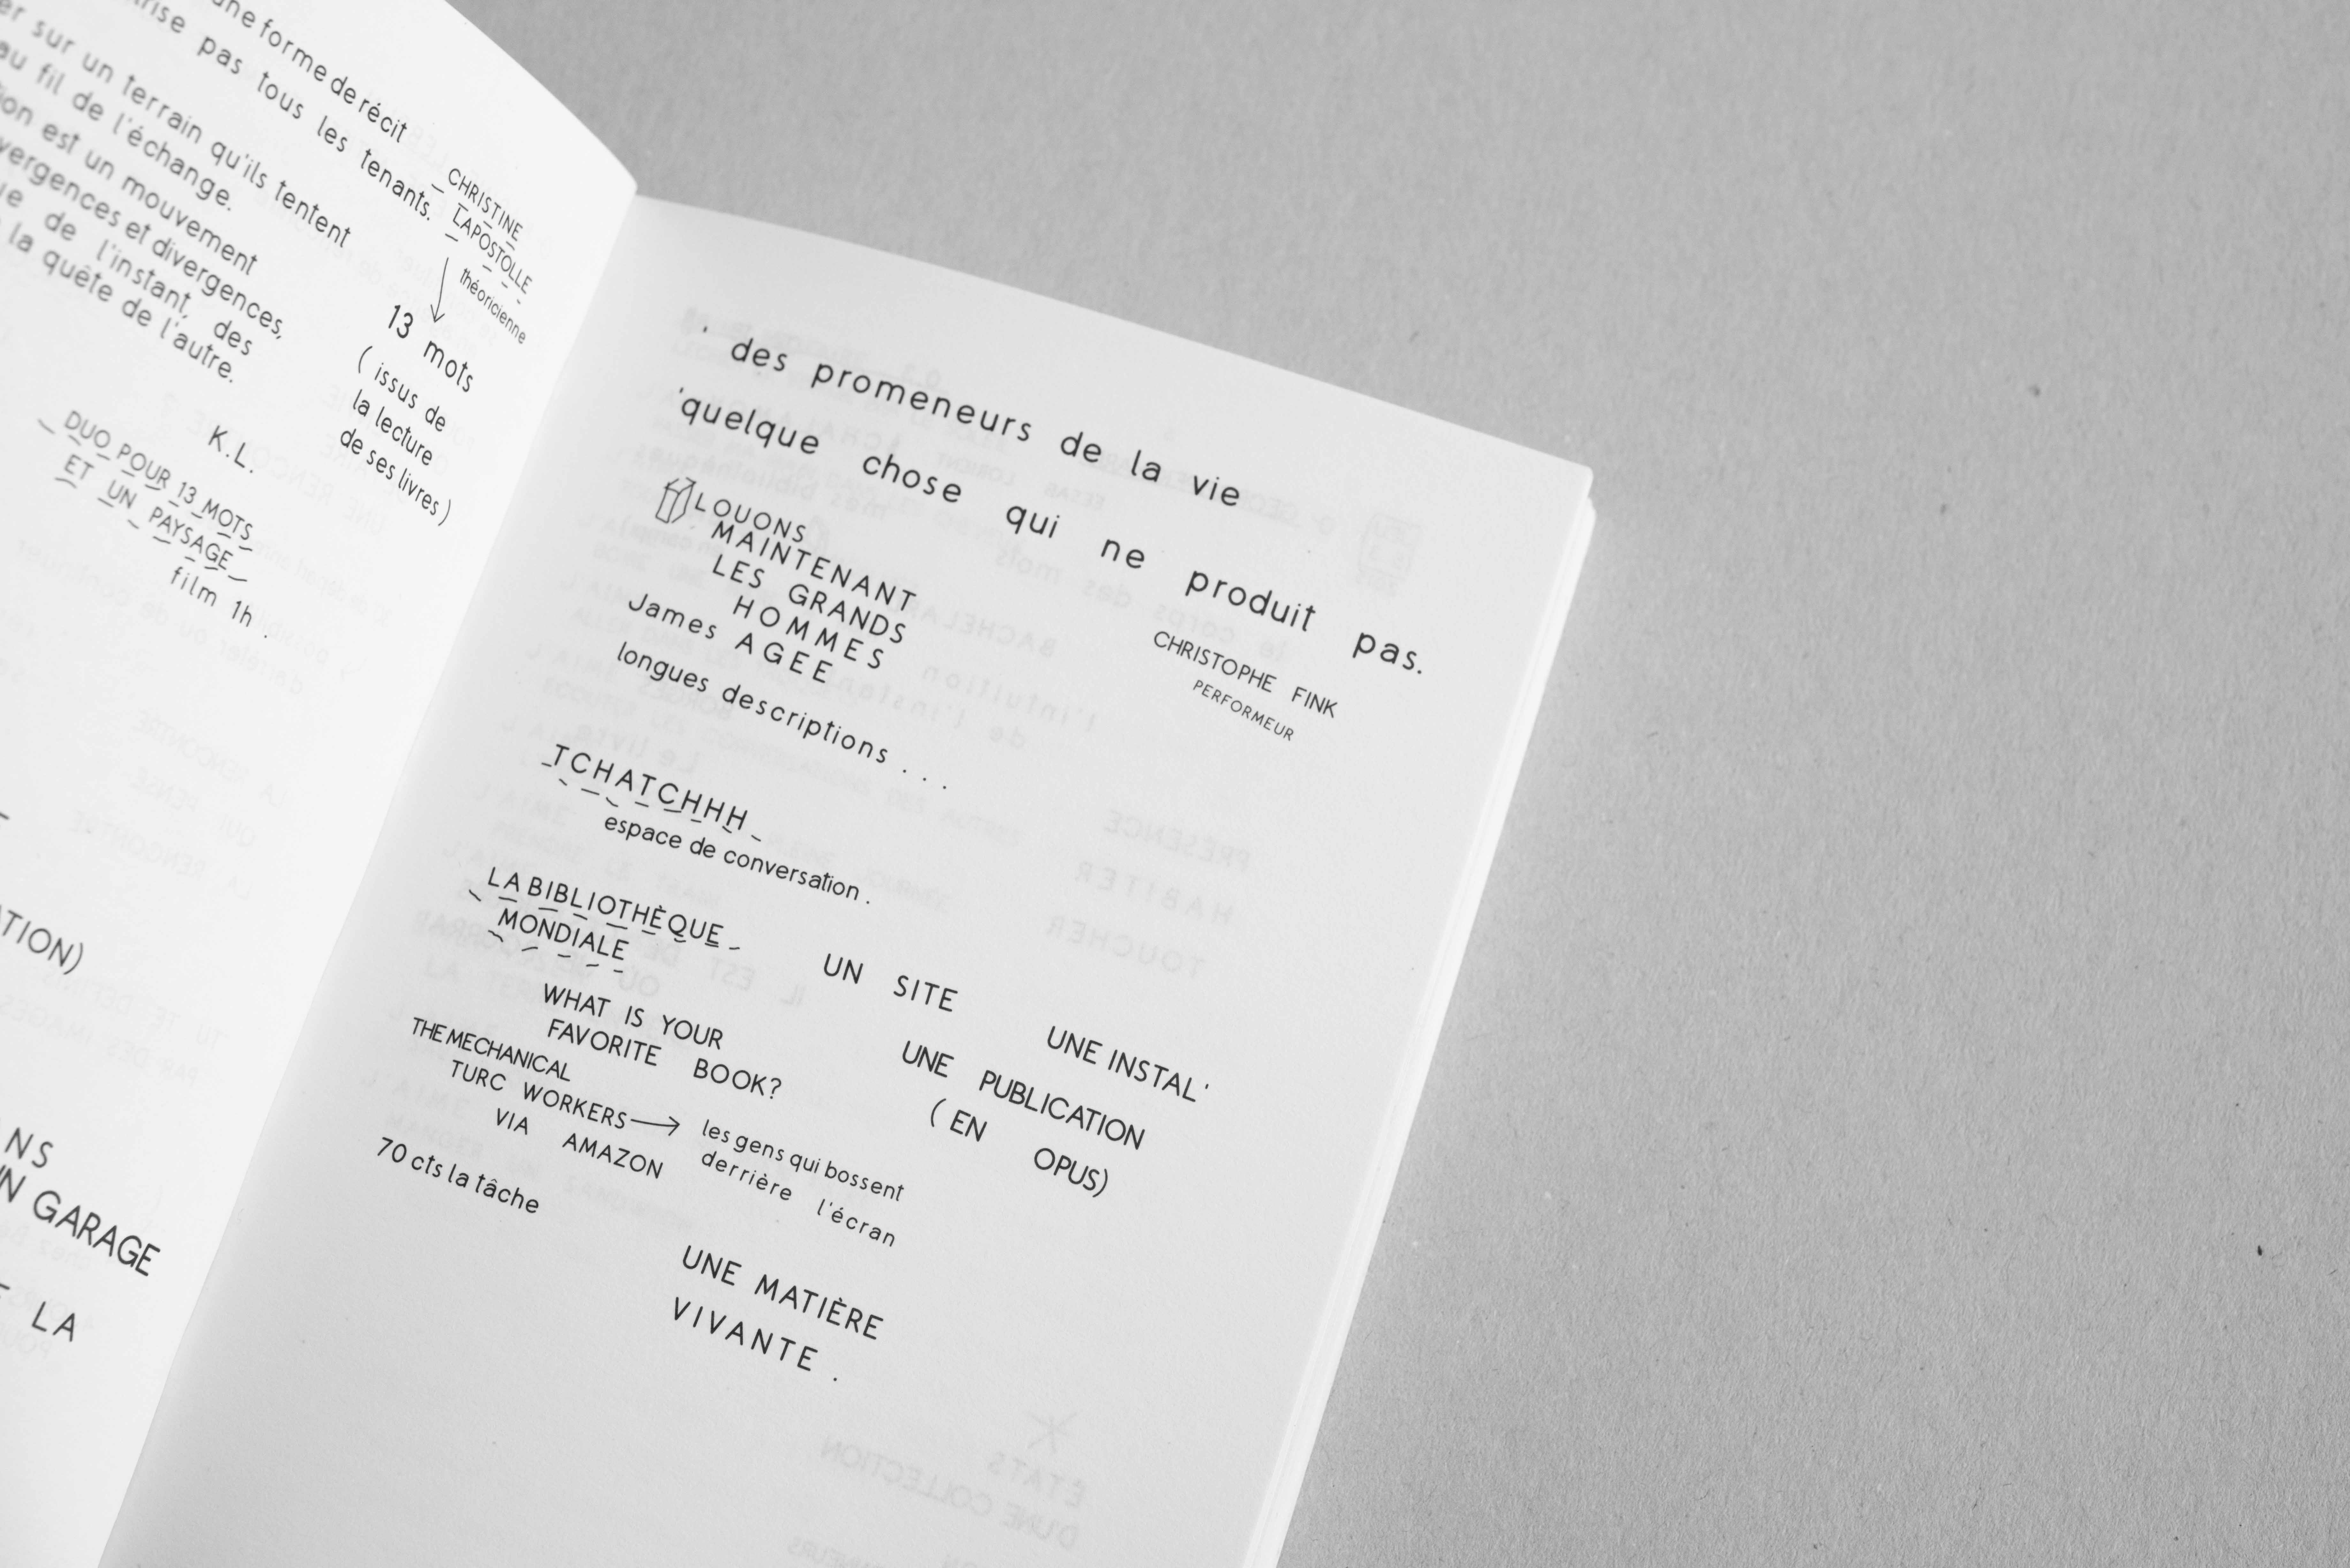 une forme de récit
pas tous les tenants.
sur un terrain qu'ils tentent
au fil de l'échange.
est un mouvement
et divergences,
de l'instant, des
la quête de l'autre.
K.L.
CHRISTINE
LAPOSTOLLE
théoricienne
13 mots
( issus de
la lecture
de ses livres )
DUO POUR 13 MOTS
ET UN PAYSAGE
film 1h .
GARAGE
LA
' des promeneurs de la vie
'quelque chose qui ne produit pas.
CHRISTOPHE FINK
PERFORMEUR
LOUONS
MAINTENANT
LES GRANDS
HOMMES
James AGEE
longues descriptions . . .
TCHATCHHH
espace de conversation .
LA BIBLIOTHÈQUE
MONDIALE
UN SITE
UNE INSTAL'
UNE PUBLICATION
( EN OPUS)
WHAT IS YOUR
FAVORITE BOOK?
THE MECHANICAL
TURC WORKERS
VIA AMAZON
les gens qui bossent
derrière l'écran
70 cts la tâche
UNE MATIÈRE
VIVANTE .